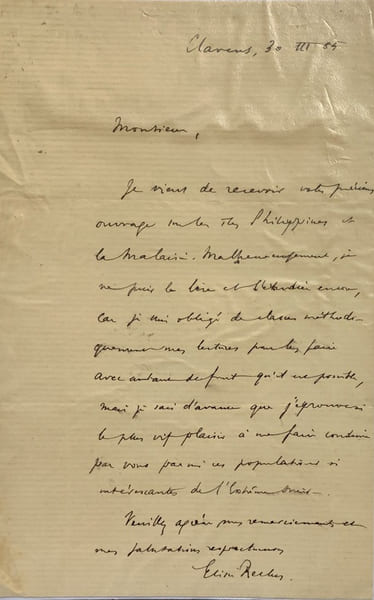 Clarens, 30 III 85
Monsieur,
Je viens de recevoir votre précieux
ouvrage sur les Iles Philippines et
la Malaisie. Malheureusement, je
ne puis le lire et l'étudier encore,
car je suis obligé de classer méthodi-
quement mes lectures pour les faire
avec autant de fruit qu'il est possible,
mais je sais d'avance que j'éprouverai
le plus vif plaisir à me faire conduire
par vous parmi ces populations si
intéressantes de l'Extrême Orient.
Veuillez agréer mes remerciements et
mes salutations respectueuses
Elisée Reclus.